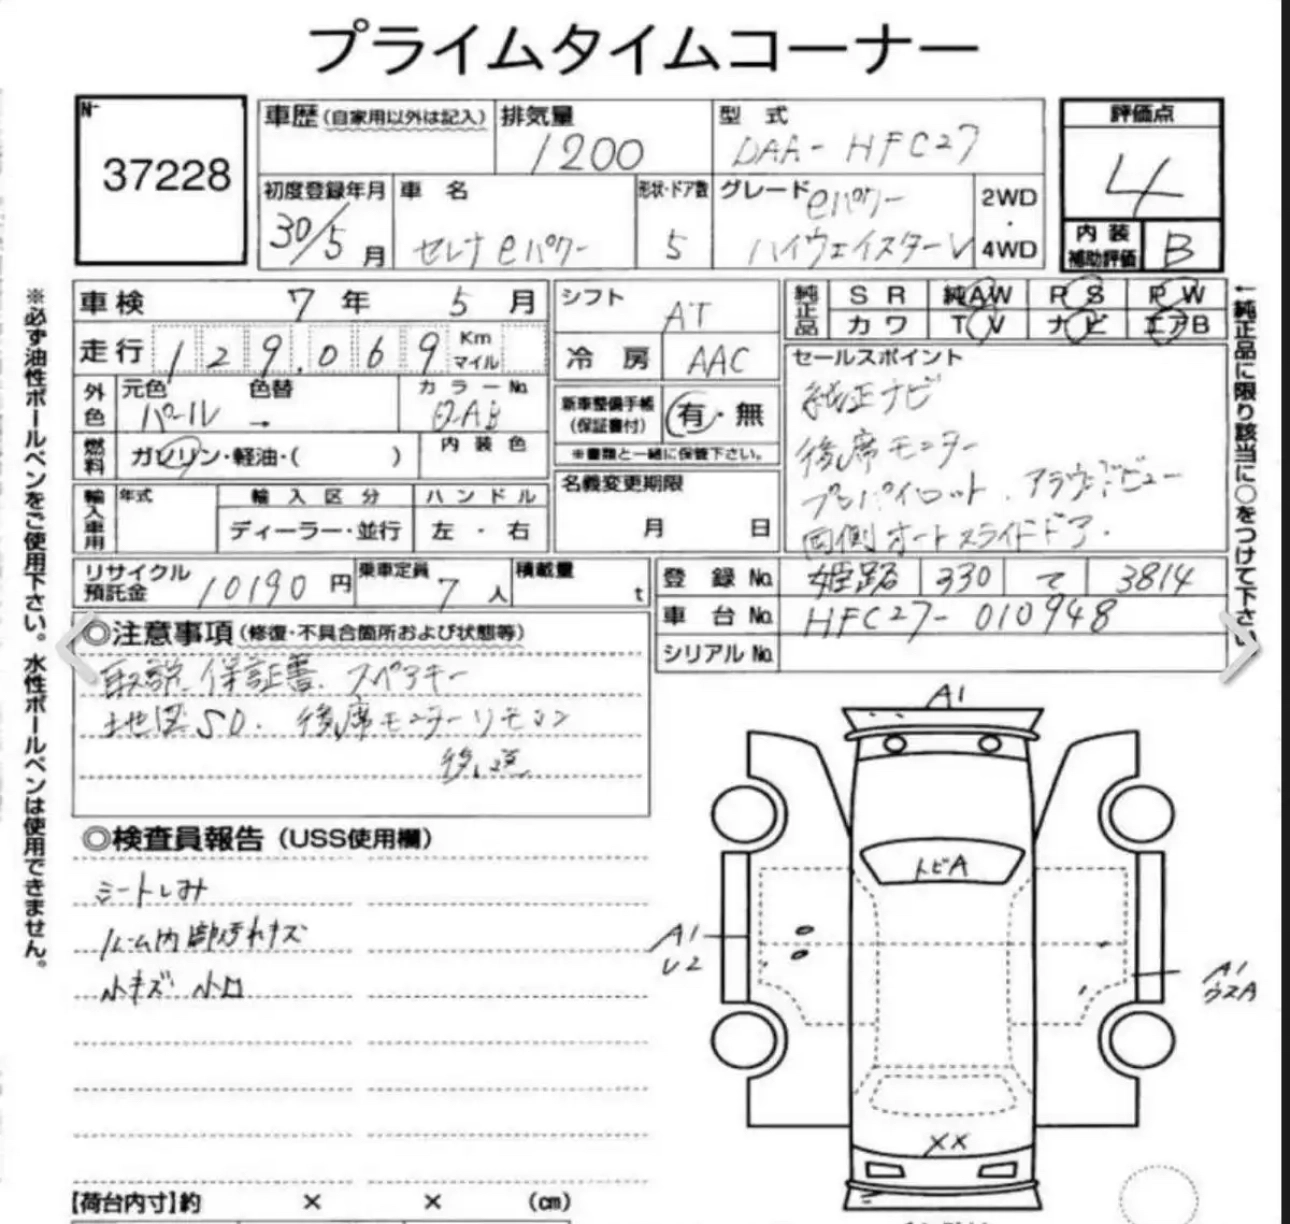 プライムタイムコーナー
No.
37228
車歴(自家用以外は記入)
排気量
1200
型式
DAA-HFC27
評価点
4
初度登録年月
30/5月
車名
セレナeパワー
形状・ドア数
5
グレード
eパワー
ハイウェイスターV
2WD
・
4WD
内装
補助評価
B
車検 7年 5月
走行 129.069 Km
マイル
外色
元色
パール
色替
→
カラーNo.
QAB
燃料
ガソリン・軽油・( )
内装色
輸入車用
年式
輸入区分
ディーラー・並行
ハンドル
左・右
シフト
AT
冷房 AAC
新車整備手帳
(保証書付)
有・無
※書類と一緒に保管下さい。
名義変更期限
月 日
純正品
SR 純AW PS PW
カワ TV ナビ エアB
セールスポイント
純正ナビ
後席モニター
プロパイロット、アラウンドビュー
両側オートスライドドア.
リサイクル
預託金
10190円
乗車定員
7人
積載量
t
登録No. 姫路 330 て 3814
車台No. HFC27-010948
シリアルNo.
◎注意事項(修復・不具合箇所および状態等)
取説.保証書.スペアキー
地図SD.後席モニターリモコン
後送
◎検査員報告(USS使用欄)
シートしみ
ルーム内部汚れキズ
小キズ 小凹
【荷台内寸】約 × × (cm)
A1
トビA
A1
U2
A1
ウスA
XX
※必ず油性ボールペンをご使用下さい。水性ボールペンは使用できません。
←純正品に限り該当に○をつけて下さい